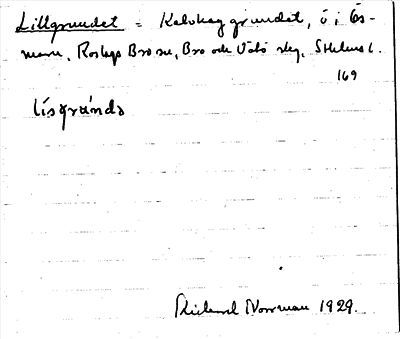 Lillgrundet = Kalvhaggrundet, ö i Ös-
maren, Roslags Bro sn, Bro och Vätö skg, Sthlms l.
169
lisgrunda
Rickard Norrman 1929.